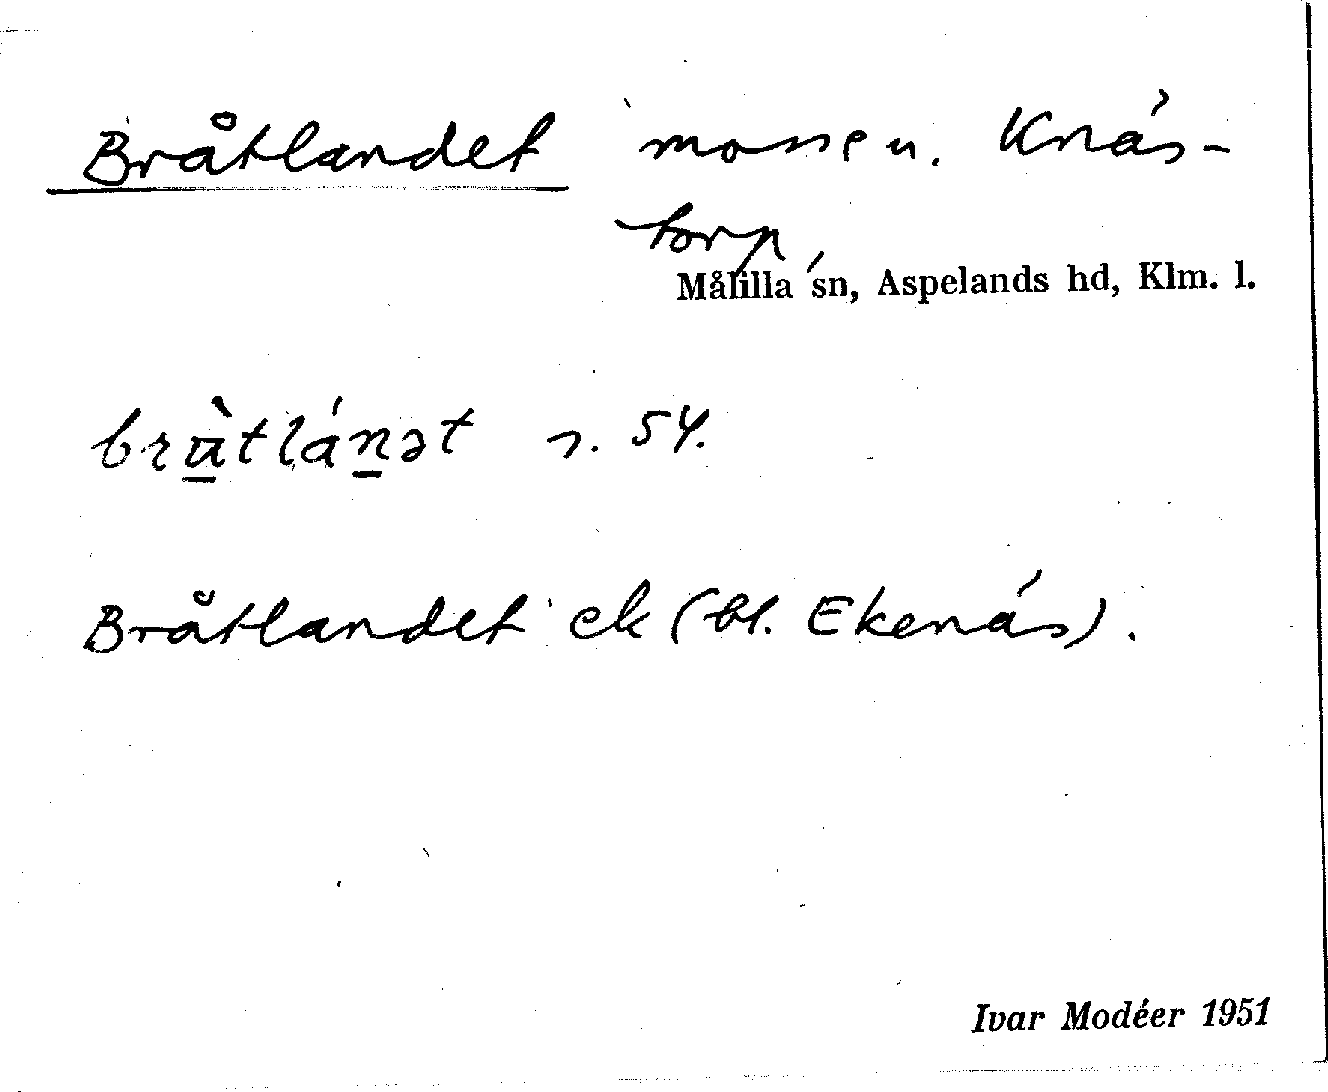 Bråtlandet mosse u. Knás-
torp,
Målilla sn, Aspelands hd, Klm. l.
brùtlánət s. 54.
Bråtlandet ek (bl. Ekenás).
Ivar Modéer 1951